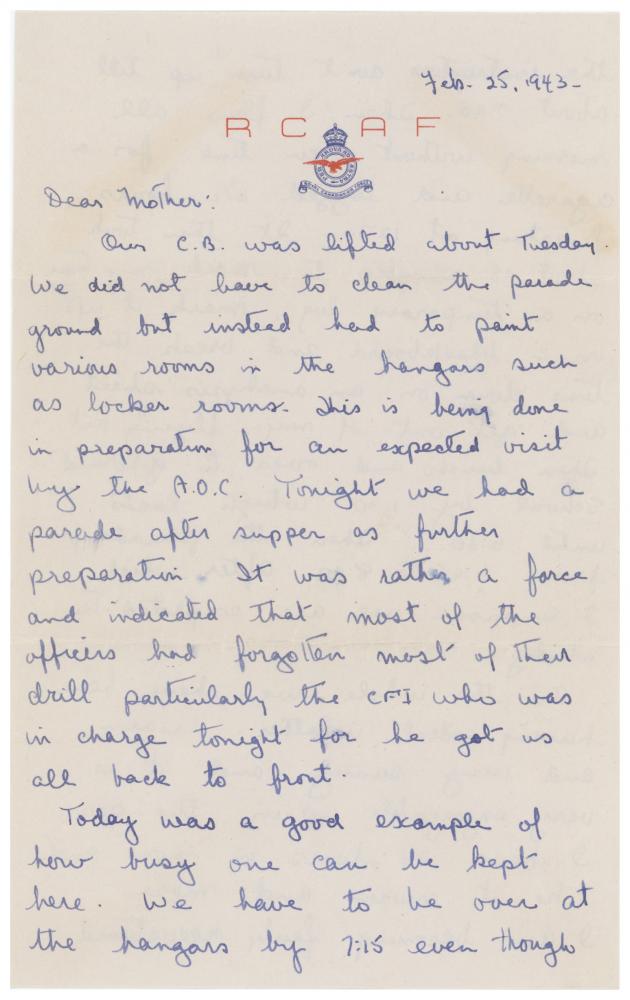 Feb. 25, 1943-
R C A F
Dear Mother:
Our C.B. was lifted about Tuesday.
We did not have to clean the parade
ground but instead had to paint
various rooms in the hangars such
as locker rooms. This is being done
in preparation for an expected visit
by the A.O.C Tonight we had a
parade after supper as further
preparation. It was rather a farce
and indicated that most of the
officers had forgotten most of their
drill particularly the CFI who was
in charge tonight for he got us
all back to front.
Today was a good example of
how busy one can be kept
here. We have to be over at
the hangars by 7:15 even though